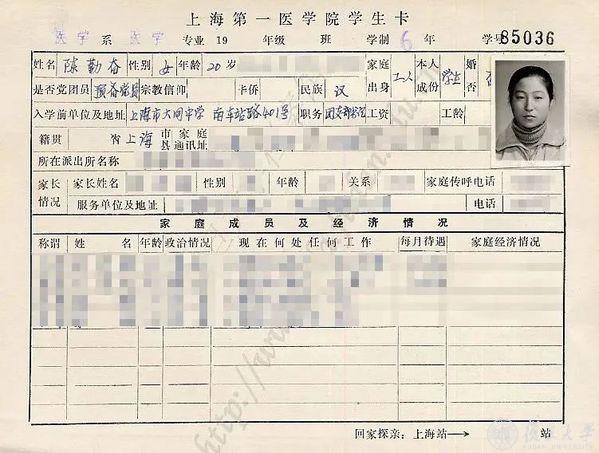 上海第一医学院学生卡
医学系 医学专业 19 年级 班 学制 6 年 学号 85036
姓名 陈勤奋 性别 女 年龄 20岁 家庭出身 工人 本人成份 学生 婚否
是否党团员 宗教信仰 卡侨 民族 汉
入学前单位及地址 上海市大同中学 南车站路401号 职务 团支部书记 工资 工龄
籍贯 省 上海 市县 家庭通讯址
所在派出所名称
家长情况 家长姓名 性别 年龄 关系 家庭传呼电话
服务单位及地址 电话
家庭成员及经济情况
称谓 姓名 年龄 政治情况 现在何处任何工作 每月待遇 家庭经济情况
回家探亲：上海站→ 站